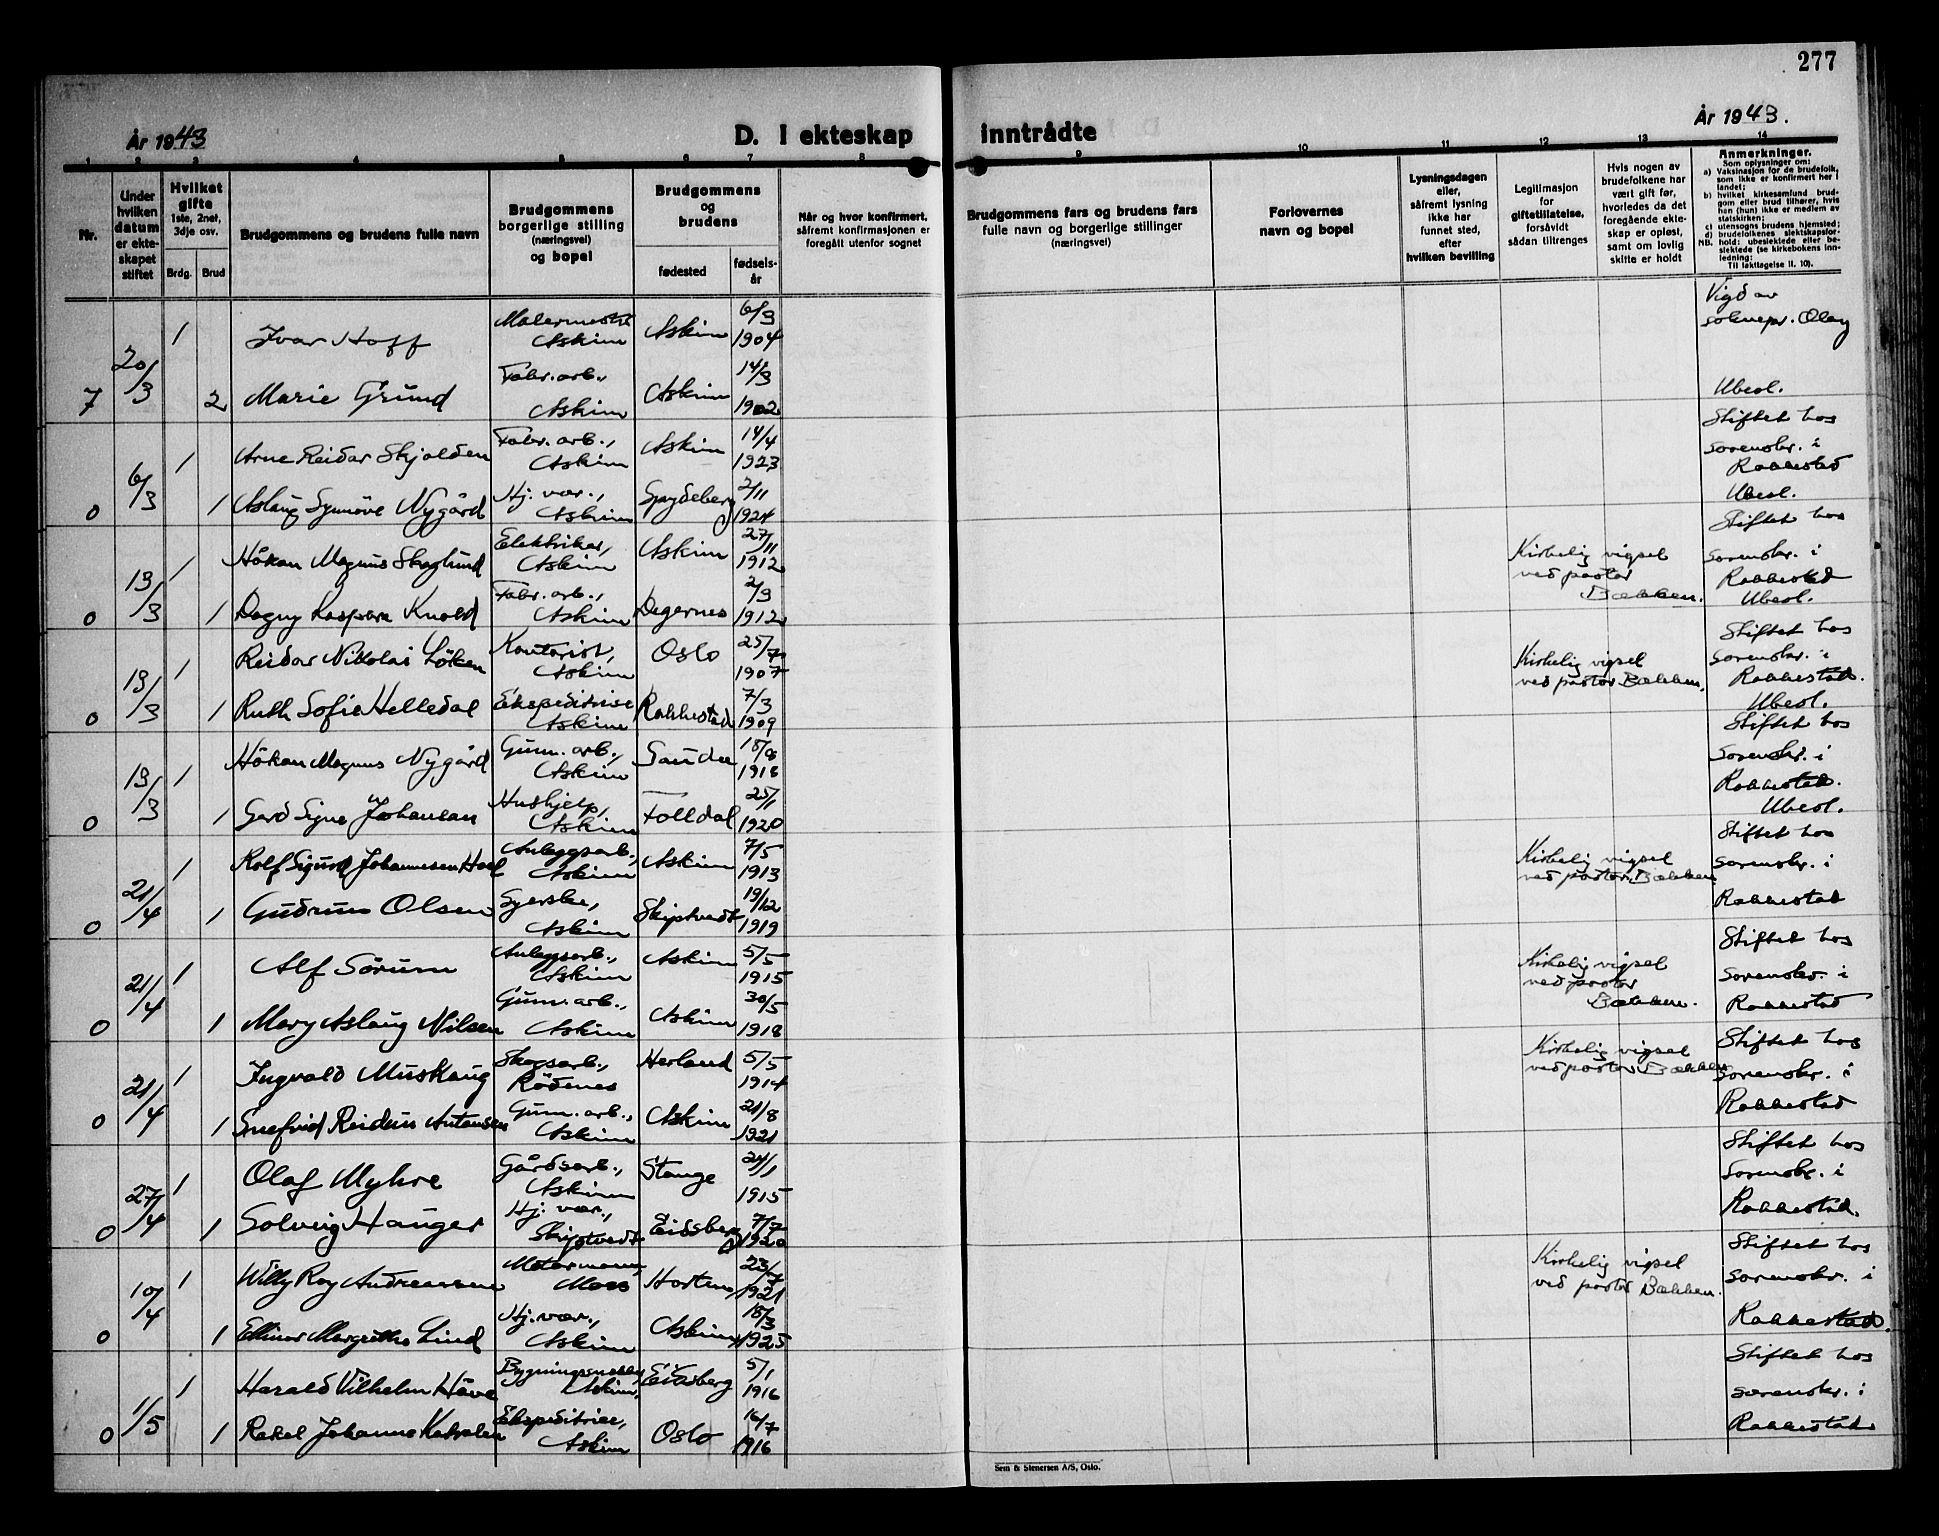 277
År 1943
D. I ekteskap inntrådte
År 1943.
1 2 3 4 5 6 7 8 9 10 11 12 13 14
Nr.
Under hvilken datum er ekteskapet stiftet
Hvilket gifte
1ste, 2net, 3dje osv.
Brdg. Brud
Brudgommens og brudens fulle navn
Brudgommens borgerlige stilling (næringsvei) og bopel
Brudgommens og brudens
fødested
fødselsår
Når og hvor konfirmert, såfremt konfirmasjonen er foregått utenfor sognet
Brudgommens fars og brudens fars fulle navn og borgerlige stillinger (næringsvei)
Forlovernes navn og bopel
Lysningsdagen eller, såfremt lysning ikke har funnet sted, efter hvilken bevilling
Legitimasjon for giftetillatelse, forsåvidt sådan tiltrenges
Hvis nogen av brudefolkene har vært gift før, hvorledes da det foregående ekteskap er opløst, samt om lovlig skifte er holdt
Anmerkninger.
Som oplysninger om:
a) Vaksinasjon for de brudefolk, som ikke er konfirmert her i landet;
b) hvilket kirkesamfund brudgom eller brud tilhører, hvis han (hun) ikke er medlem av statskirken;
c) utensogns brudens hjemsted;
d) brudefolkenes slektskapsforhold: ubeslektede eller beslektede (se kirkebokens innledning:
NB. Til iakttagelse II. 10).
7 20/3 1 Ivar Hoff Malermester Askim Askim 6/3 1904 Vigd av sognepr. Olay
2 Marie Grund Fabr. arb., Askim Askim 14/3 1902 Ubesl.
0 6/3 1 Arne Reidar Skjolden Fabr. arb., Askim Askim 14/4 1923 Stiftet hos sorenskr. i Rakkestad
1 Aslaug Synnöve Nygård Hj. vær., Askim Spydeberg 2/11 1924 Ubesl.
0 13/3 1 Håkon Magnus Skoglund Elektriker, Askim Askim 27/11 1912 Kirkelig vigsel ved pastor Bækken. Stiftet hos sorenskr. i Rakkestad
1 Dagny Kaspara Knold Fabr. arb., Askim Degernes 2/3 1912 Ubesl.
0 13/3 1 Reidar Nikolai Löken Kontorist, Askim Oslo 25/7 1907 Kirkelig vigsel ved pastor Bækken. Stiftet hos sorenskr. i Rakkestad.
1 Ruth Sofie Helledal Ekspeditrise Askim Rakkestad 7/3 1909 Ubesl.
0 13/3 1 Håkon Magnus Nygård Gum. arb., Askim Sauda 18/8 1918 Stiftet hos sorenskr. i Rakkestad.
1 Gerd Signe Johansen Hushjelp, Askim Folldal 25/1 1920 Ubesl.
0 21/4 1 Rolf Sigurd Johannesen Anleggsarb., Askim Askim 7/5 1913 Kirkelig vigsel ved pastor Bækken Stiftet hos sorenskr. i Rakkestad
1 Gudrun Olsen Syerske, Askim Skiptvedt 19/12 1919
0 21/4 1 Alf Sörum Anleggsarb., Askim Askim 5/5 1915 Kirkelig vigsel ved pastor Bækken. Stiftet hos sorenskr. i Rakkestad
1 Mary Aslaug Nilsen Gum. arb., Askim Askim 30/5 1918
0 21/4 1 Ingvald Muskaug Skogsarb., Rödenes Herland 5/5 1914 Kirkelig vigsel ved pastor Bækken Stiftet hos sorenskr. i Rakkestad
1 Snefrid Reidun Antonsen Gum. arb., Askim Askim 21/8 1921
0 27/4 1 Olaf Myhre Gårdsarb., Askim Stange 24/1 1915 Stiftet hos sorenskr. i Rakkestad.
1 Solveig Hauger Hj. vær., Skiptvedt Eidsberg 7/7 1920
0 10/4 1 Willy Roy Andreassen Motormann, Moss Horten 1921 Kirkelig vigsel ved pastor Bækken. Stiftet hos sorenskr. i Rakkestad.
1 Ellinor Margrethe Lind Hj. vær., Askim Askim 18/3 1925
0 1/5 1 Harald Vilhelm Askim. Eidsberg 5/1 1916 Stiftet hos sorenskr. i Rakkestad
1 Rakel Johanne Ekspeditrise, Askim Oslo 16/7 1916
Sem & Stenersen A/S, Oslo.